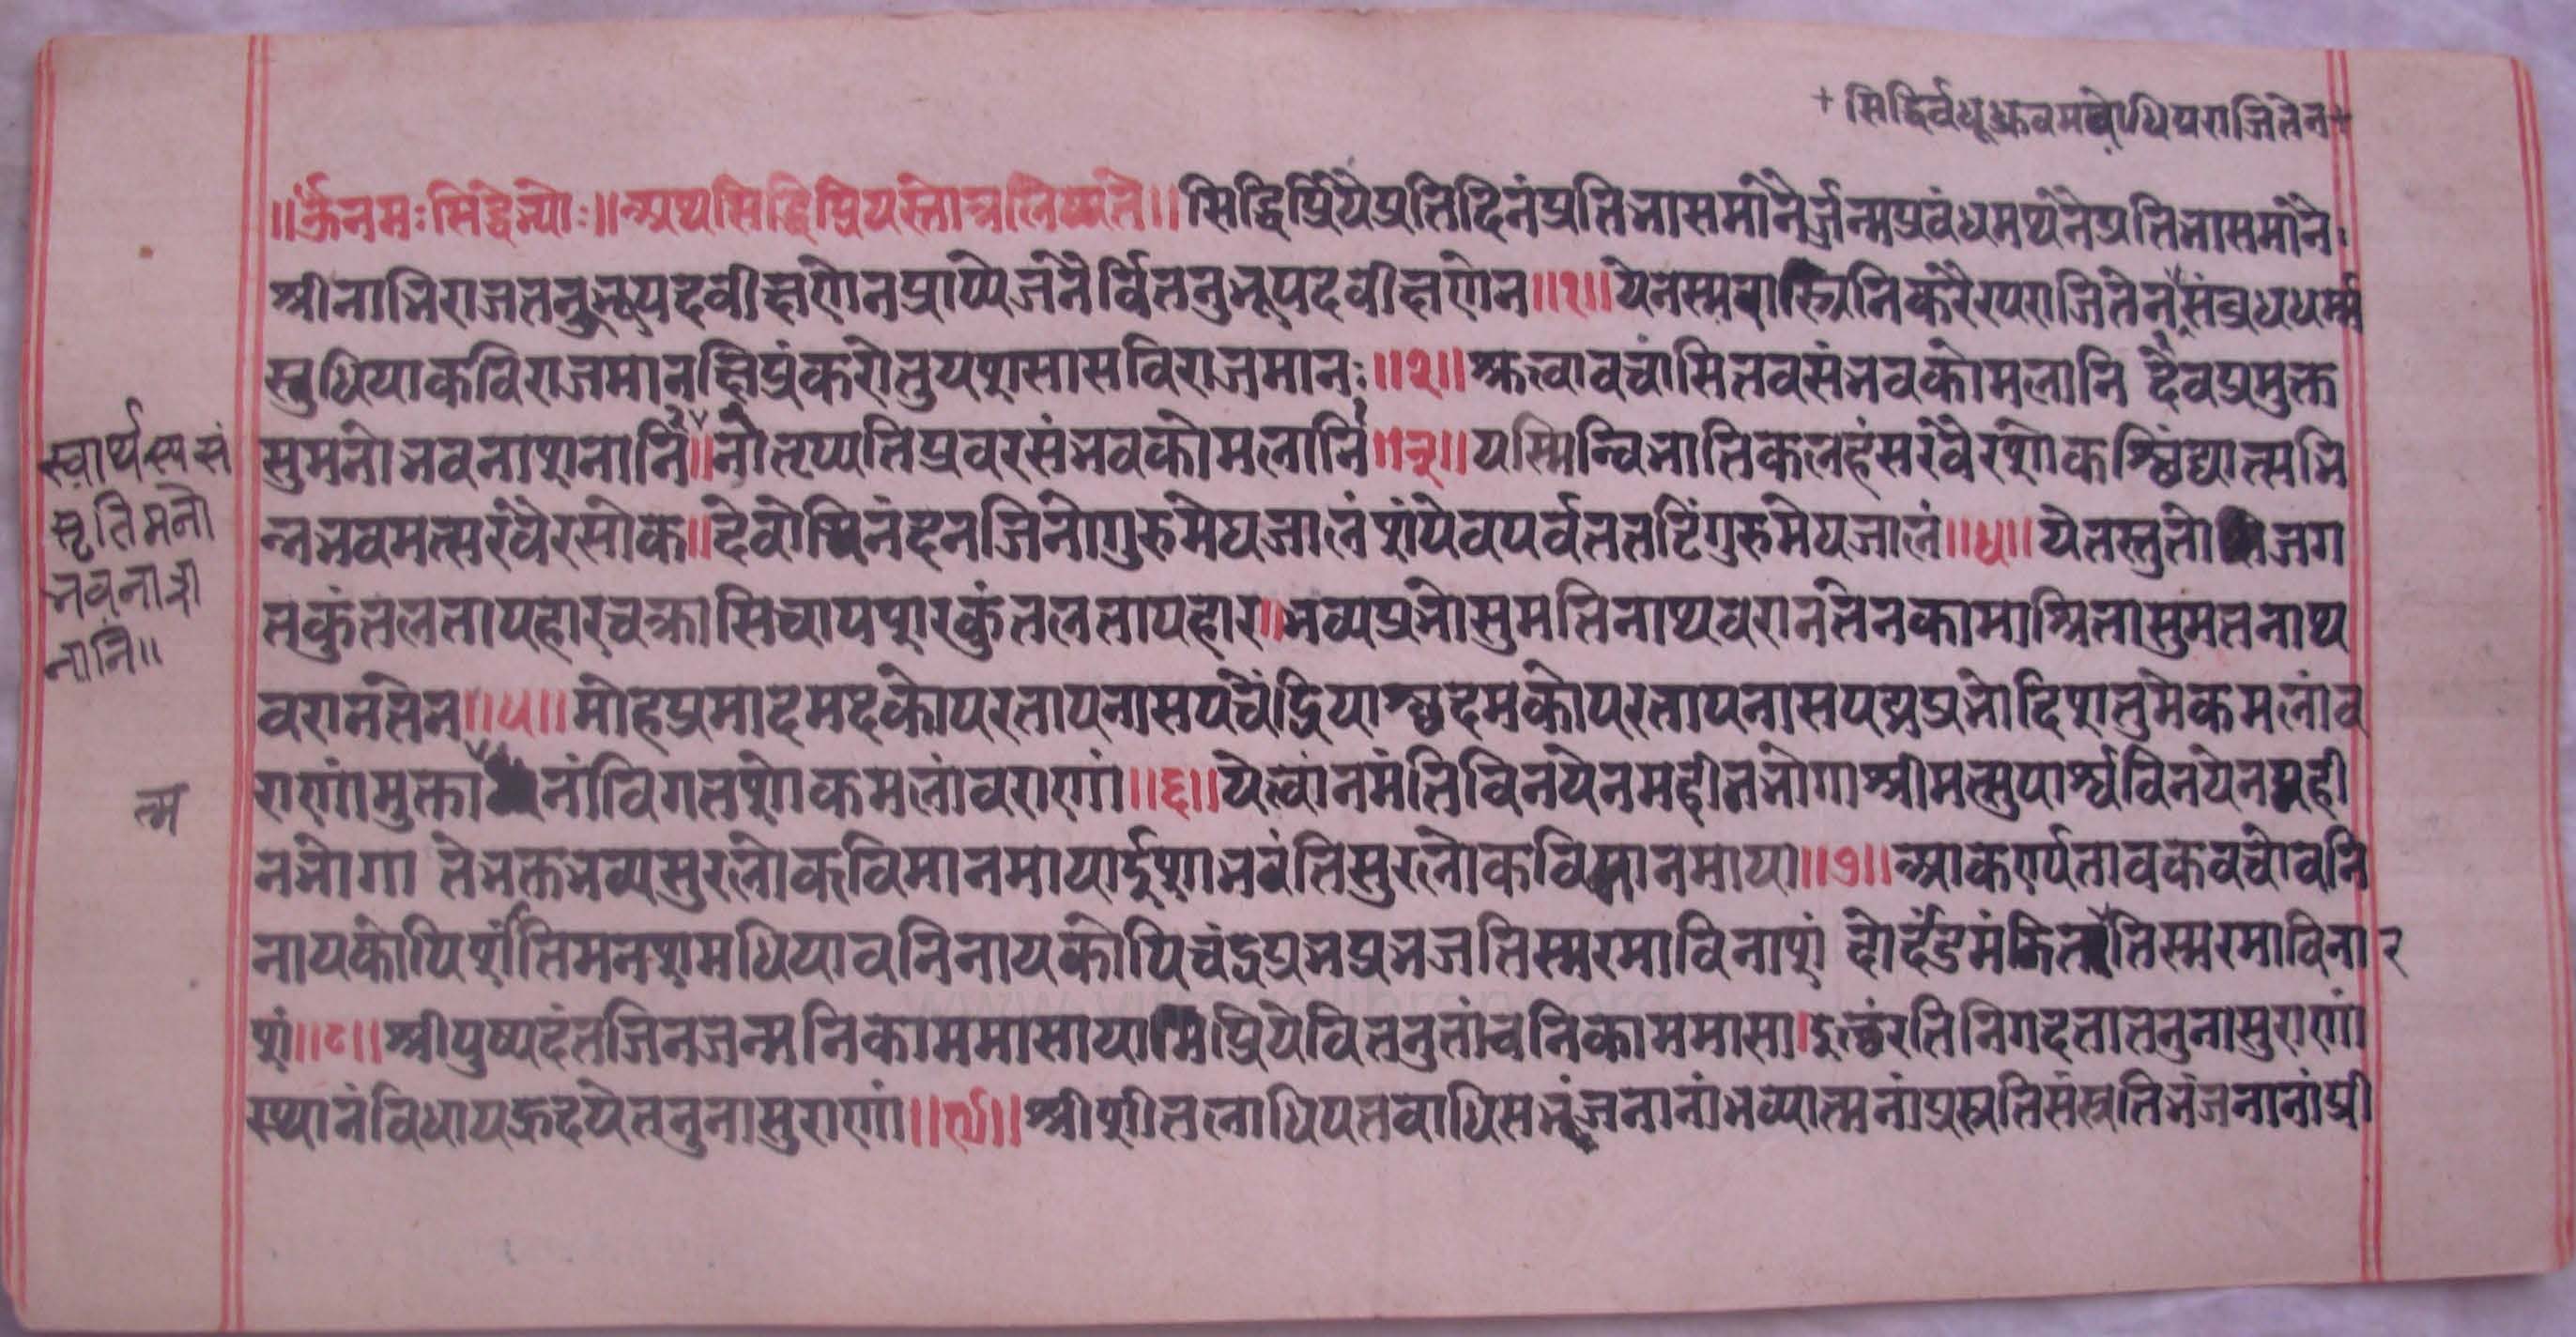 + सिद्धिर्वधूध्रुवमबोधिपराजितेन +
॥ॐनमःसिद्धेभ्योः॥अथसिद्धिप्रियस्तोत्रलिष्यते॥सिद्धिप्रियैप्रतिदिनंप्रतिभासमानैर्जन्मप्रबंधमथनैप्रतिभासमानै।
श्रीनाभिराजतनुभूपदवीक्षणेनप्रापेजनैर्वितनुभूपदवीक्षणेन॥१॥येनस्मरास्त्रनिकरैरपराजितेन संवृधधर्म्म
सुधियाकविराजमानक्षिप्रंकरोतुयशसासविराजमानः॥२॥श्रुत्वावचांसितवसंभवकोमलानि देवप्रमुक्त
सुमनोभवनाशनानि॥नोतृप्यतिप्रवरसंभवकोमलानि॥३॥यस्मिन्विभातिकलहंसरवैरशोकश्छिंद्यात्सभि
न्नभवमत्सरवैरसोक॥देवोभिनंदनजिनोगुरुमेघजालंशंपेवपर्वततटिंगुरुमेघजालं॥४॥येतस्तुतो जग
तकुंतलतापहारचक्रासिचापशरकुंतलतापहार॥भव्यप्रभोसुमतिनाथवरानतेनकामाश्रितासुमतनाथ
वरानतेन॥५॥मोहप्रमादमदकोपरतापनासपंचेंद्रियाश्छदमकोपरतापनासपद्मप्रभोदिशतुमेकमलांव
राणांमुक्ता नांविगतशोकमलांवराणां॥६॥येत्वांनमंतिविनयेनमहीनभोगाश्रीमत्सुपार्श्वविनयेनमही
नभोगा तेभक्तभव्यसुरलोकविमानमायार्दुशाभवंतिसुरलोकविमानमाया॥७॥आकर्ण्यतावकवचोवनि
नायकोपिशांतिमनशमधियावनिनायकोपिचंद्रप्रभप्रभजतिस्मरमाविनाशं दोर्दंडमंडित तिस्मरमाविना र
शं॥८॥श्रीपुष्पदंतजिनजन्मनिकाममासायामिप्रियेवितनुतांचनिकाममासा।इत्थंरतिनिगदतातनुनासुराणां
स्थानंविधायह्रदयेतनुनासुराणां॥९॥श्रीशीतलाधिपतवाधिसभंजनानांभव्यात्मनांप्रस्रतिसंस्रतिभंजनानांप्री
स्वार्थस्य सं
सृतिमनो
भवनाश
नानि॥
त्म